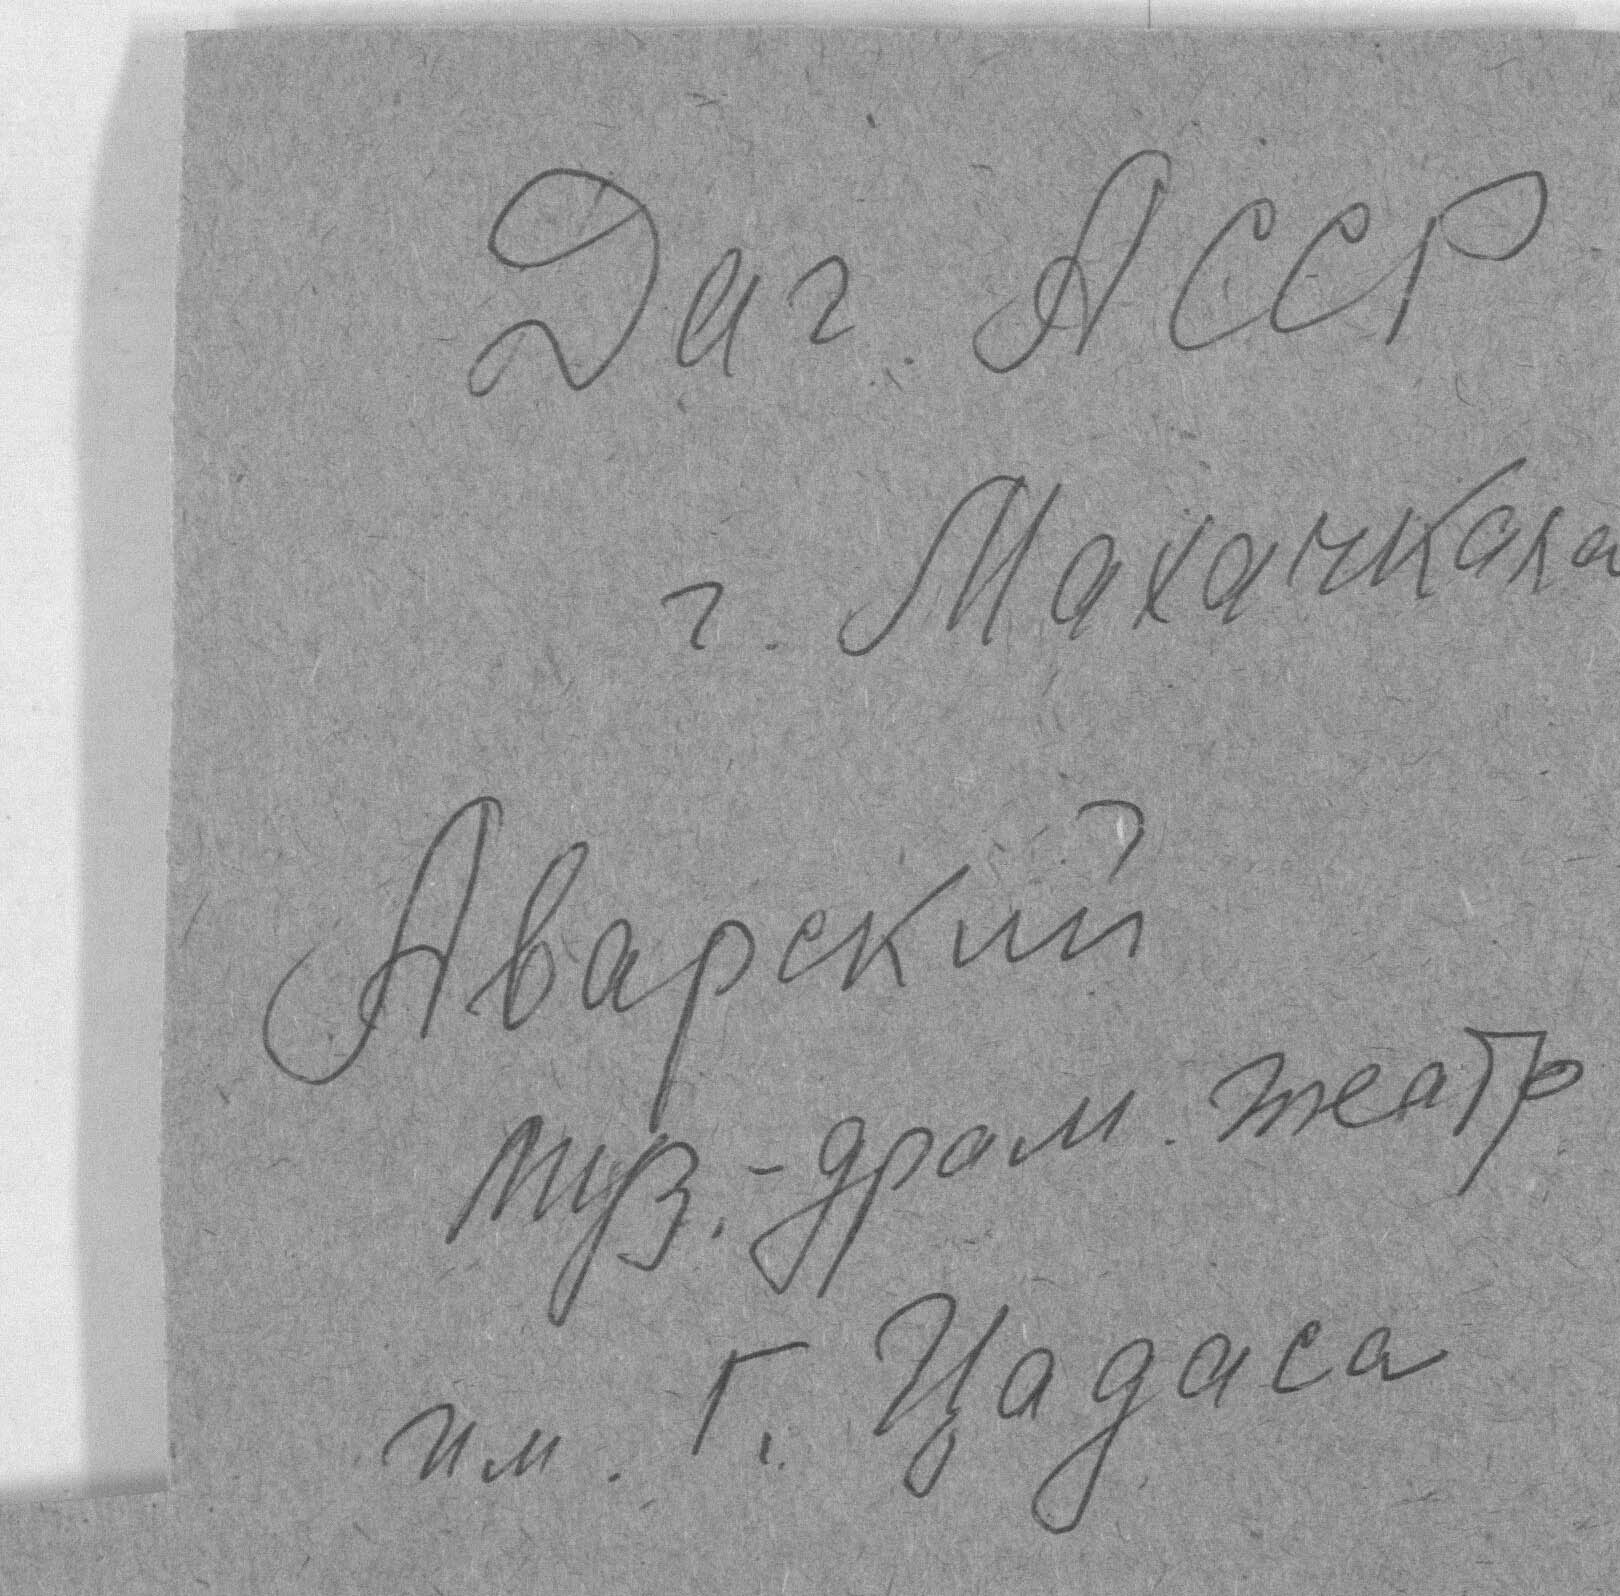 Даг. АССР
г. Махачкала
Аварский
муз.-драм. театр
им. Г. Цадаса